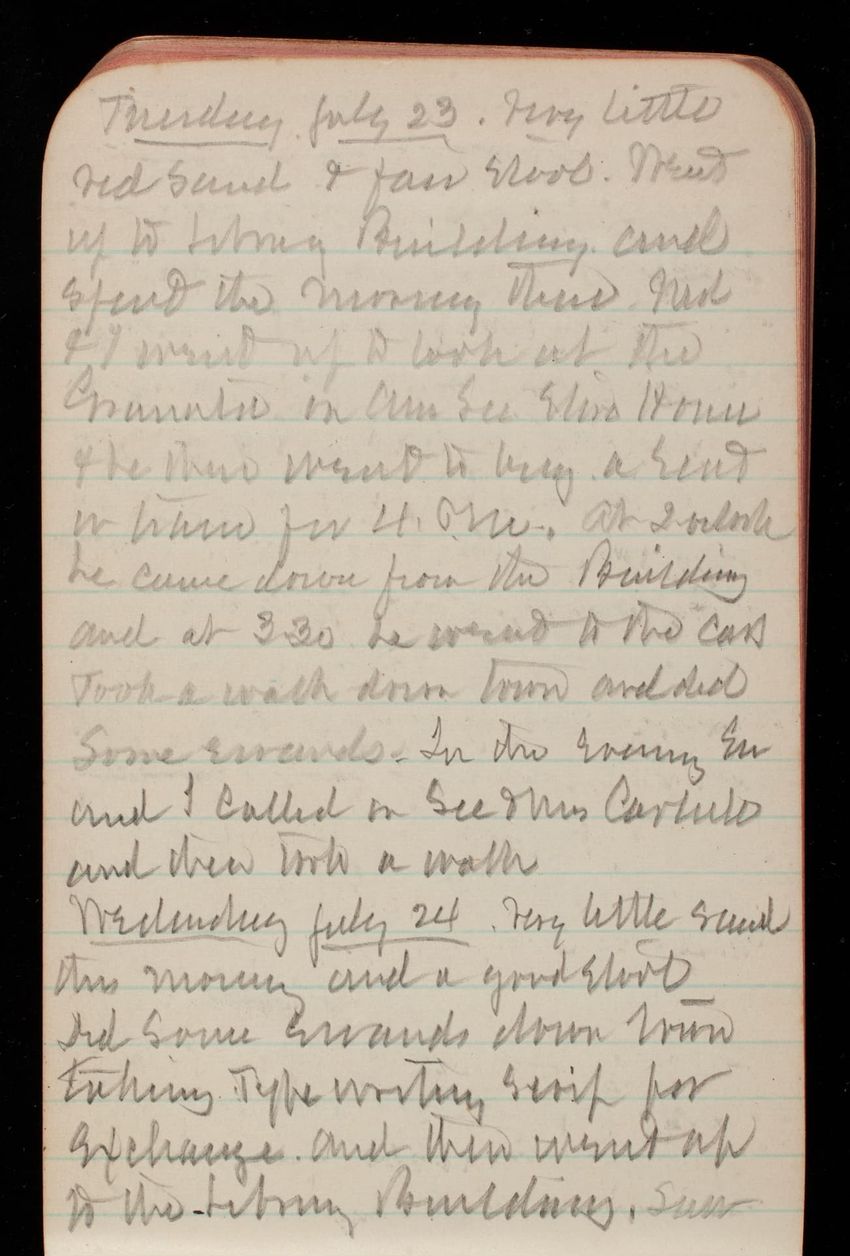 Tuesday July 23. Very little
red sand & fair stool. Went
up to Library Building and
spent the morning there. Ned
& I went up to look at the
on Am Sec Elson House
& he then went to buy a seat
in train for 4. P.M. At 2 oclock
he came down from the Building
and at 3 30 he went to the cars
Took a walk down town and did
Some errands. In the evening Em
and I called on Gee & Mrs
and then took a walk
Wednesday July 24. Very little sand
this morning and a good stool
Did Some Errands down town
taking Type writing for
Exchange. and then went up
to the Library Building. Saw